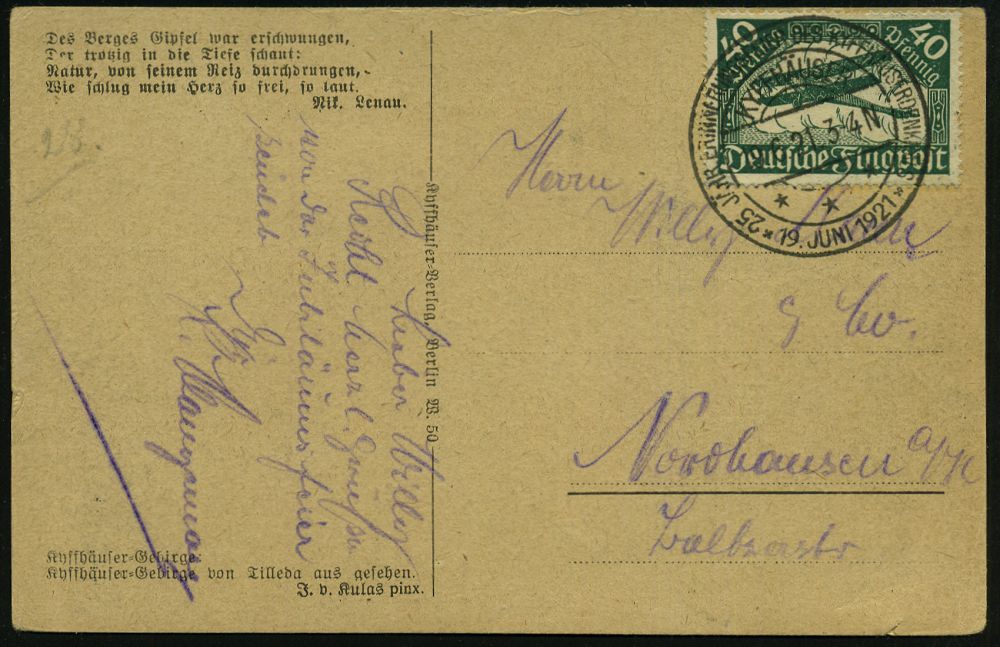 Des Berges Gipfel war erschwungen,
Der trotzig in die Tiefe schaut:
Natur, von seinem Reiz durchdrungen,
Wie schlug mein Herz so frei, so laut.
Nik. Lenau.
Lieber Willy
Recht herzl. Grüße
von der Jubiläumsfeier
sendet
Kyffhäuser-Verlag, Berlin W. 50
Kyffhäuser-Gebirge:
Kyffhäuser-Gebirge von Tilleda aus gesehen.
J. v. Kulas pinx.
40 Pfennig Pfennig 40
Deutsche Flugpost
KYFFHÄUSER
21. 3-4 N
* 25 JÄHR. ERINNERUNG
19. JUNI 1921 *
Herrn
Willy
g Co.
Nordhausen a/H